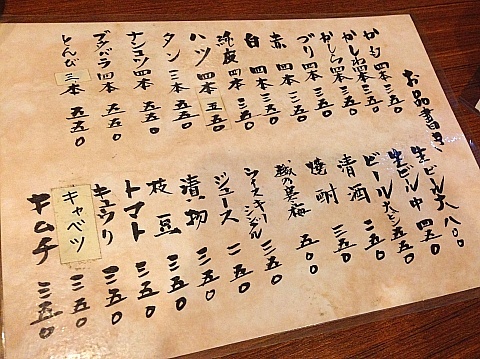 お品書き
かも 四本 三五〇
かしわ 四本 三五〇
かしら 四本 三五〇
づり 四本 三五〇
赤 四本 三五〇
白 四本 三五〇
純皮 四本 三五〇
ハツ 四本 五五〇
タン 三本 五五〇
ナンコツ 四本 五五〇
ブタバラ 四本 五五〇
とんび 三本 五五〇
生ビール 大 八〇〇
生ビール 中 四五〇
ビール 大ビン 五五〇
清酒 三五〇
焼酎 三五〇
越乃寒梅 五〇〇
ウイスキー シングル 三五〇
ジュース 二五〇
漬物 三五〇
枝豆 三五〇
トマト 三五〇
キュウリ 三五〇
キャベツ 三五〇
キムチ 三五〇